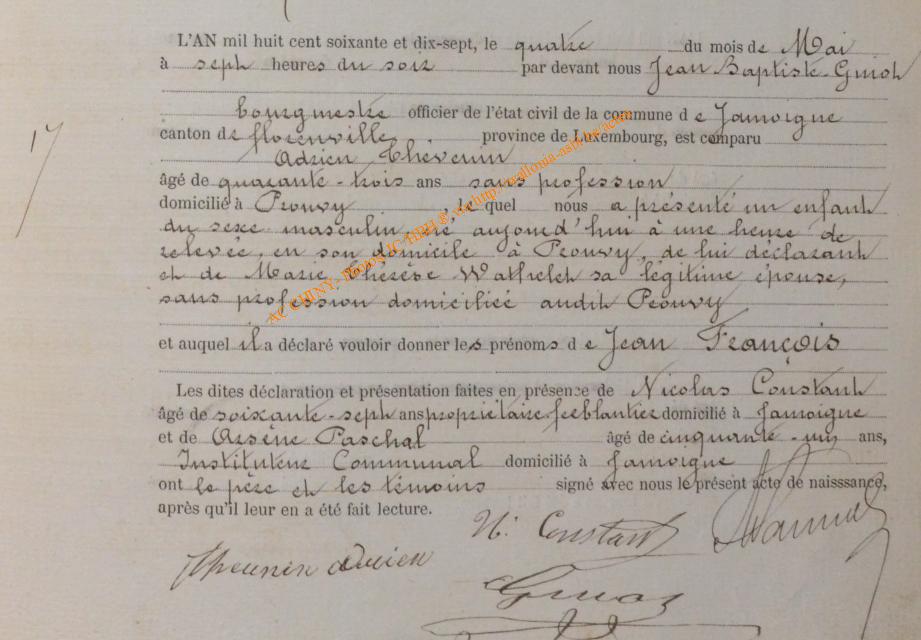 L'AN mil huit cent soixante et dix-sept, le quatre du mois de Mai
à sept heures du soir par devant nous Jean Baptiste Guiot
bourgmestre officier de l'état civil de la commune d e Jamoigne
17
canton de florenville province de Luxembourg, est comparu
Adrien Thevenin
âgé de quarante-trois ans sans profession
domicilié à Prouvy, le quel nous a présenté un enfant
du sexe masculin, né aujourd'hui à une heure de
relevée, en son domicile à Prouvy, de lui déclarant
et de Marie Thérèse Wathelet sa légitime épouse,
sans profession domiciliée audit Prouvy
et auquel il a déclaré vouloir donner les prénoms d e Jean François
Les dites déclaration et présentation faites en présense de Nicolas Constant
âgé de soixante-sept ans propriétaire ferblantier domicilié à Jamoigne
et de Arsène Paschal âgé de cinquante-un ans,
Instituteur Communal domicilié à Jamoigne
ont le père et les témoins signé avec nous le présent acte de naisssance,
après qu'il leur en a été fait lecture.
N. Constant
Thevenin Adrien
Guiot